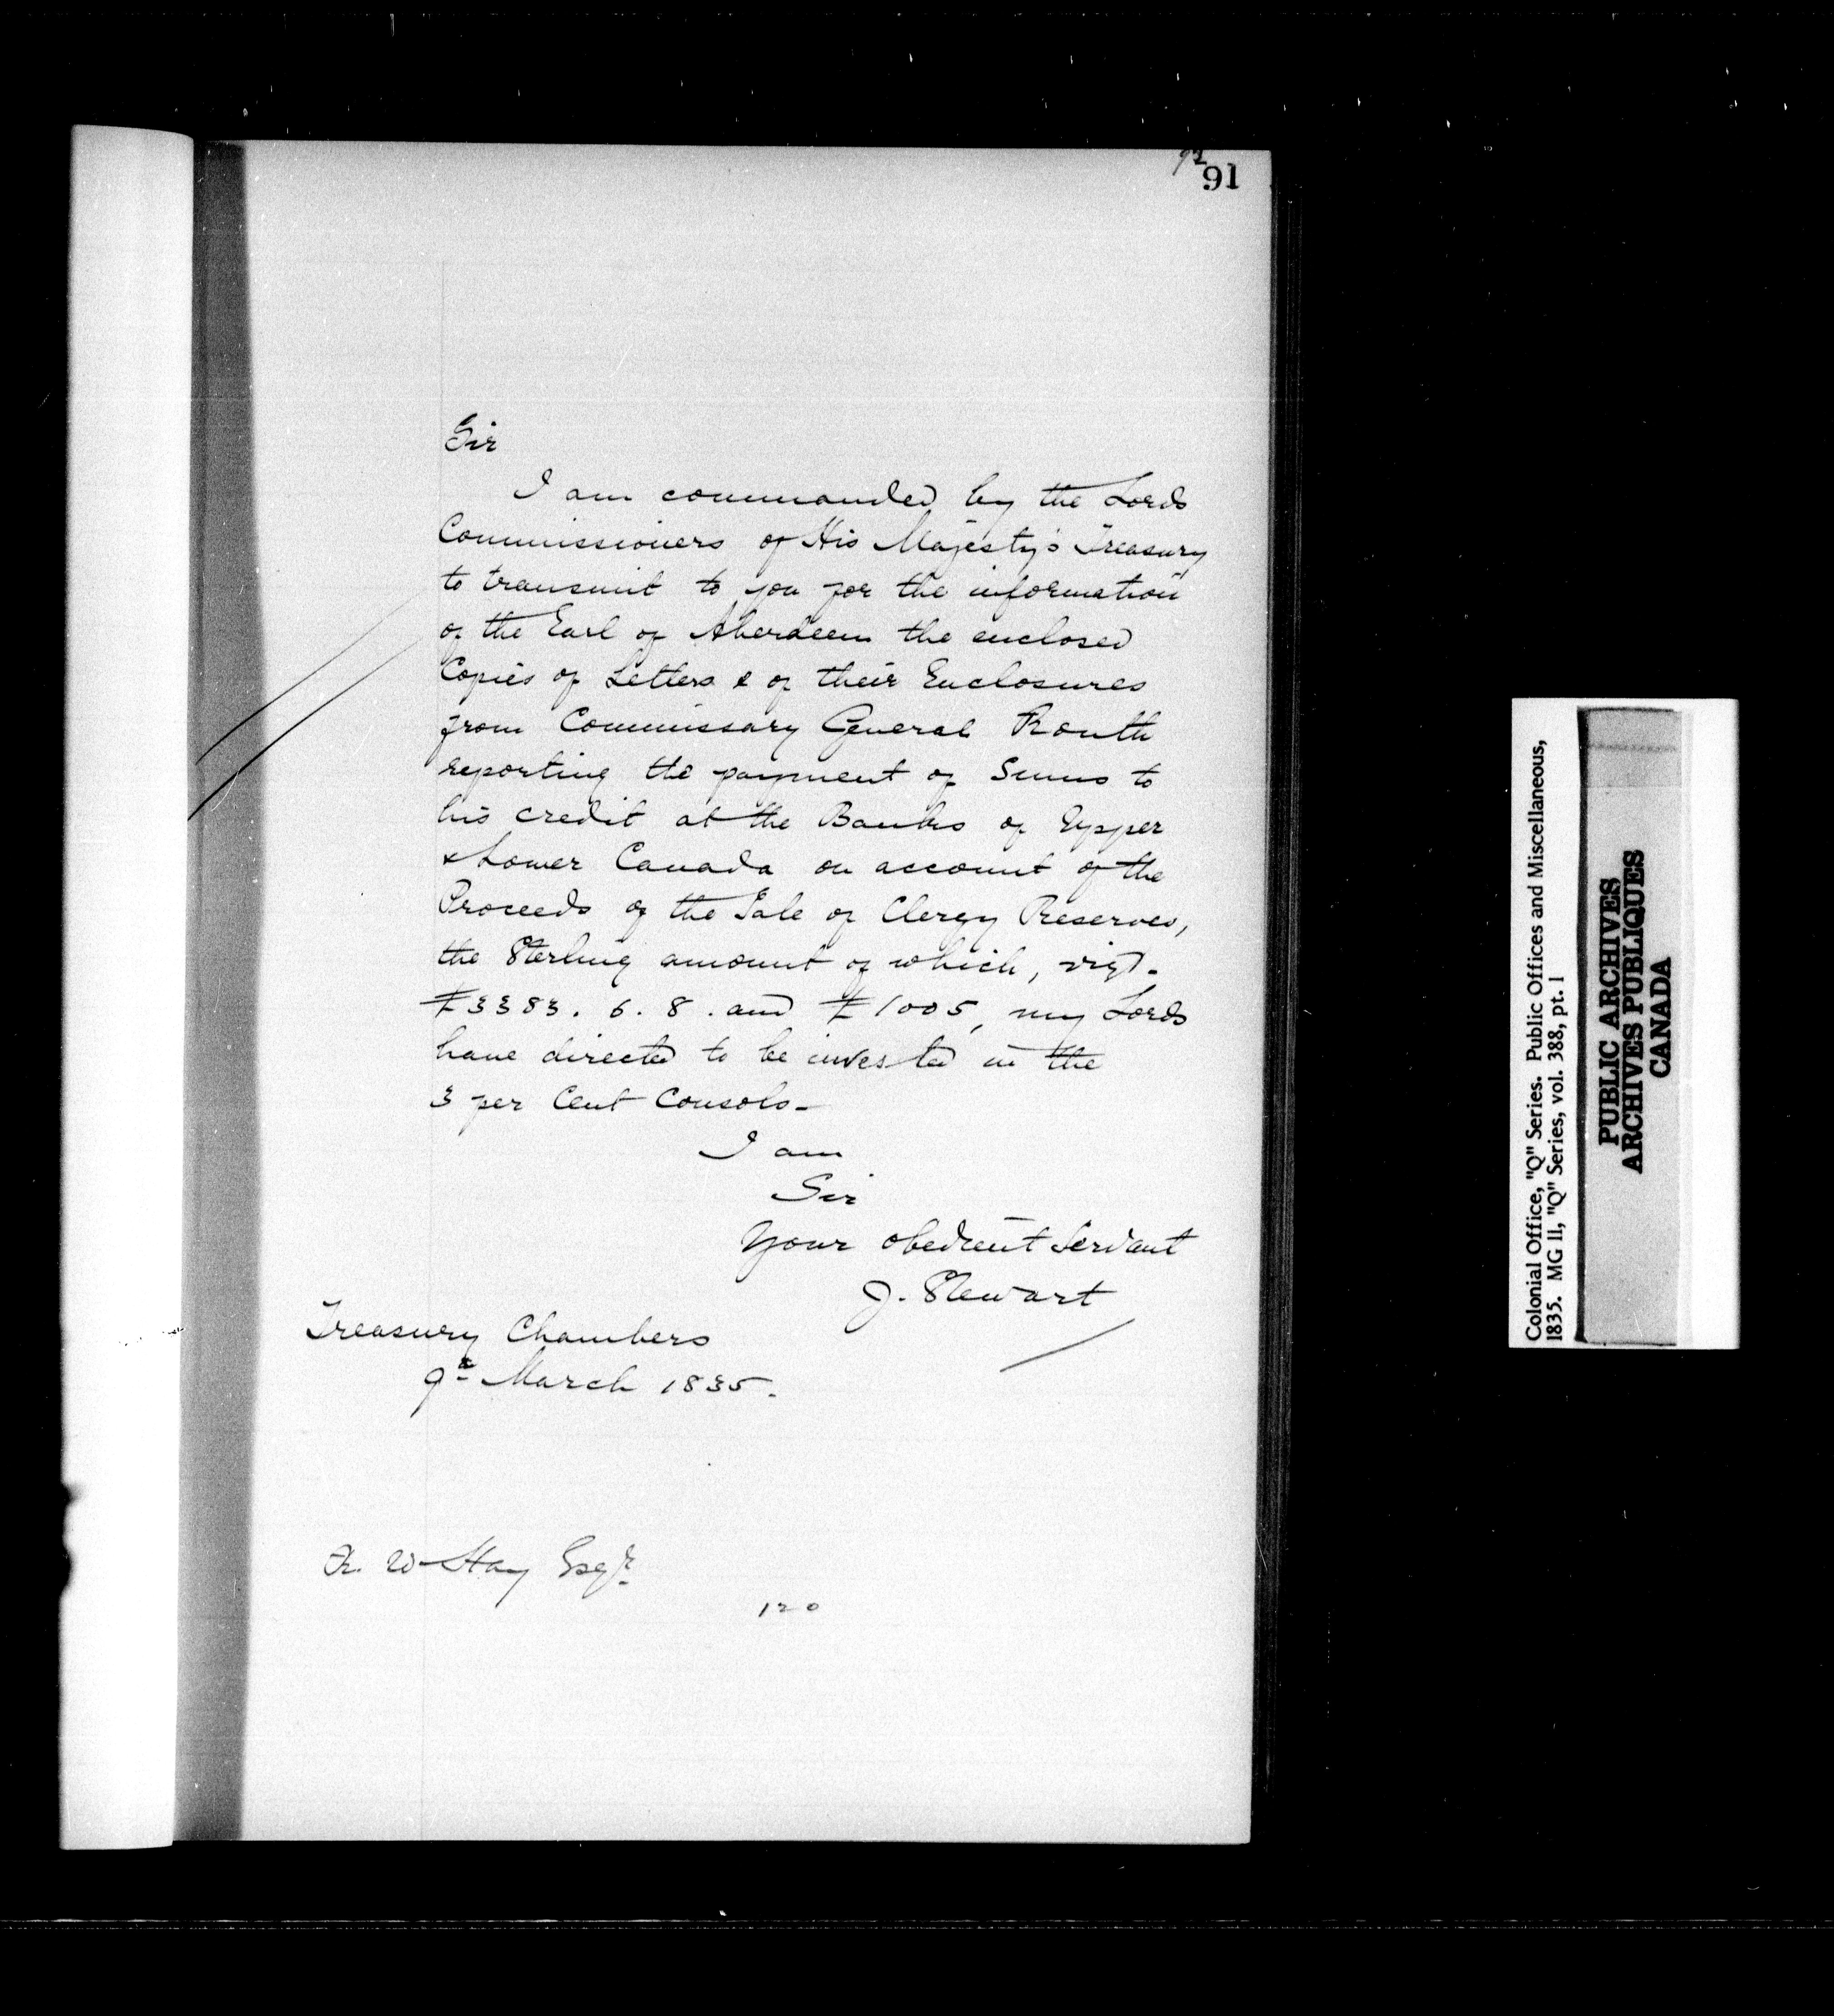 92
91
Sir
I am commanded by the Lords
Commissioners of His Majesty's Treasury
to transmit to you for the information
of the Earl of Aberdeen the enclosed
Copies of Letters & of their Enclosures
from Commissary General Routh
reporting the payment of Sums to
his credit at the Banks of Upper
& Lower Canada on account of the
Proceeds of the Sale of Clergy Reserves,
the Sterling amount of which, vizt.
£3383. 6. 8. and £1005, my Lords
have directed to be invested in the
3 per Cent Consols-
I am
Sir
Your obedient Servant
J. Stewart
Treasury Chambers
9th March 1835.
R. W Hay Esqr.
120
Colonial Office, "Q" Series. Public Offices and Miscellaneous,
1835. MG 11, "Q" Series, vol. 388, pt. 1
PUBLIC ARCHIVES
ARCHIVES PUBLIQUES
CANADA